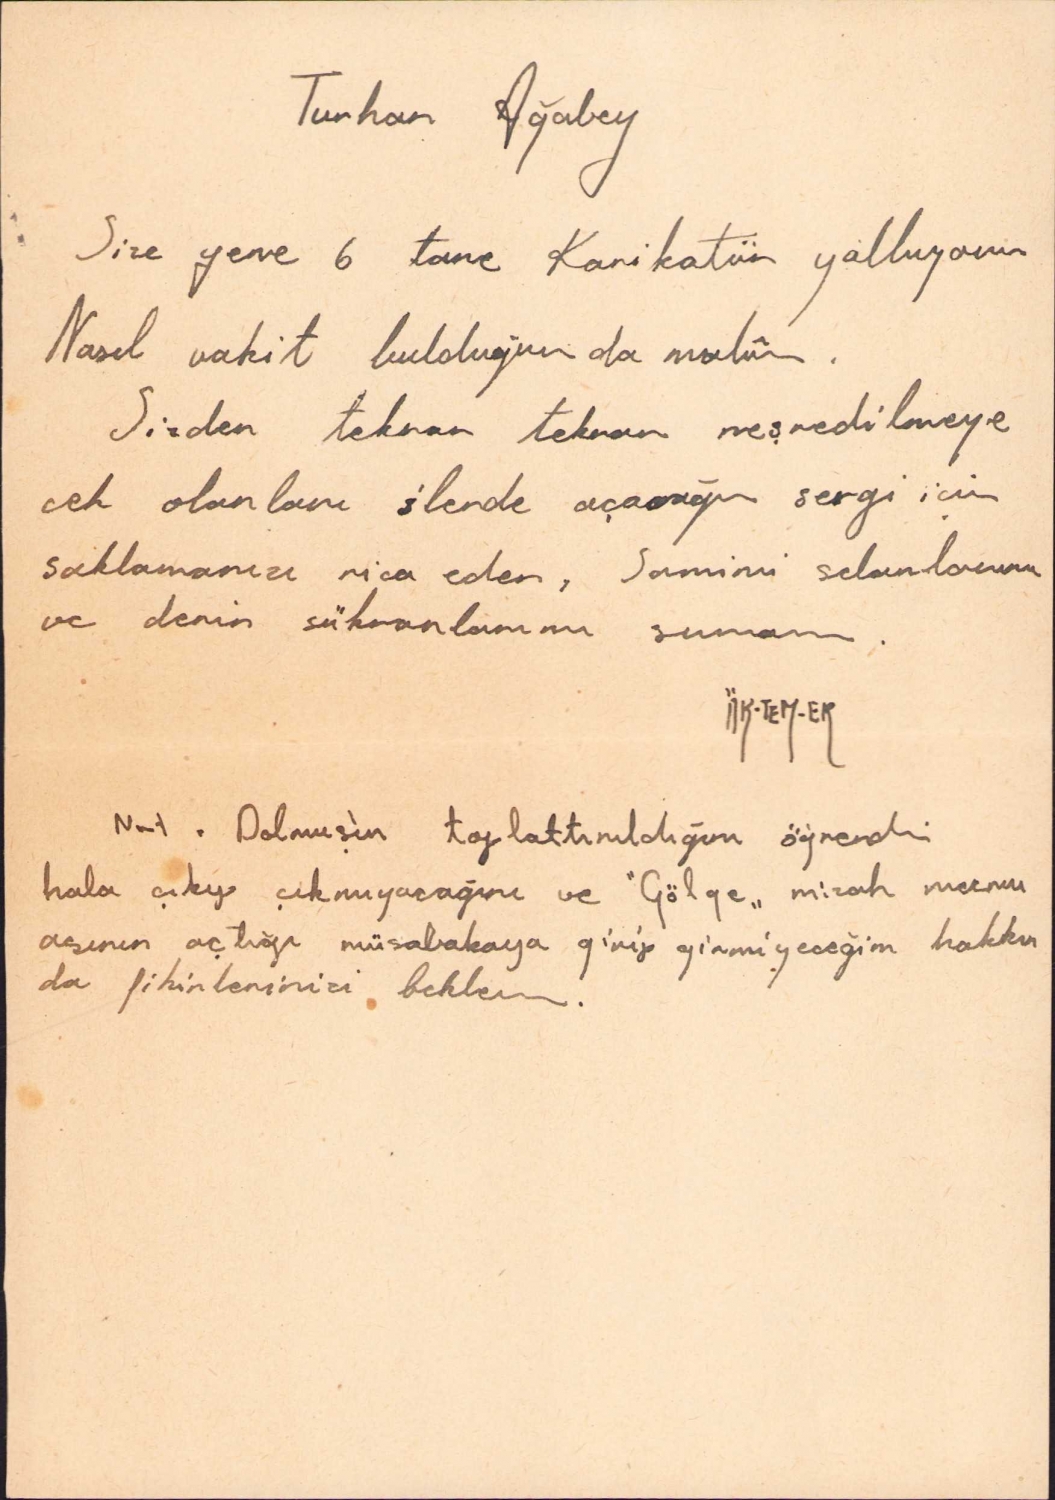 Turhan Ağabey
Size yene 6 tane Karikatür yolluyorum
Nasıl vakit bulduğum da malûm.
Sizden tekrar tekrar neşredilmeye
cek olanları ilerde açacağım sergi için
saklamanızı rica eder, Samimi selamlarımı
ve derin şükranlarımı sunarım.
ÖK-TEM-ER
Not. Dolmuş'un toplattırıldığını öğrendim
hala çıkıp çıkmıyacağını ve "Gölge„ mizah mecmu
asının açtığı müsabakaya girip girmiyeceğim hakkın
da fikirlerinizi beklerim.